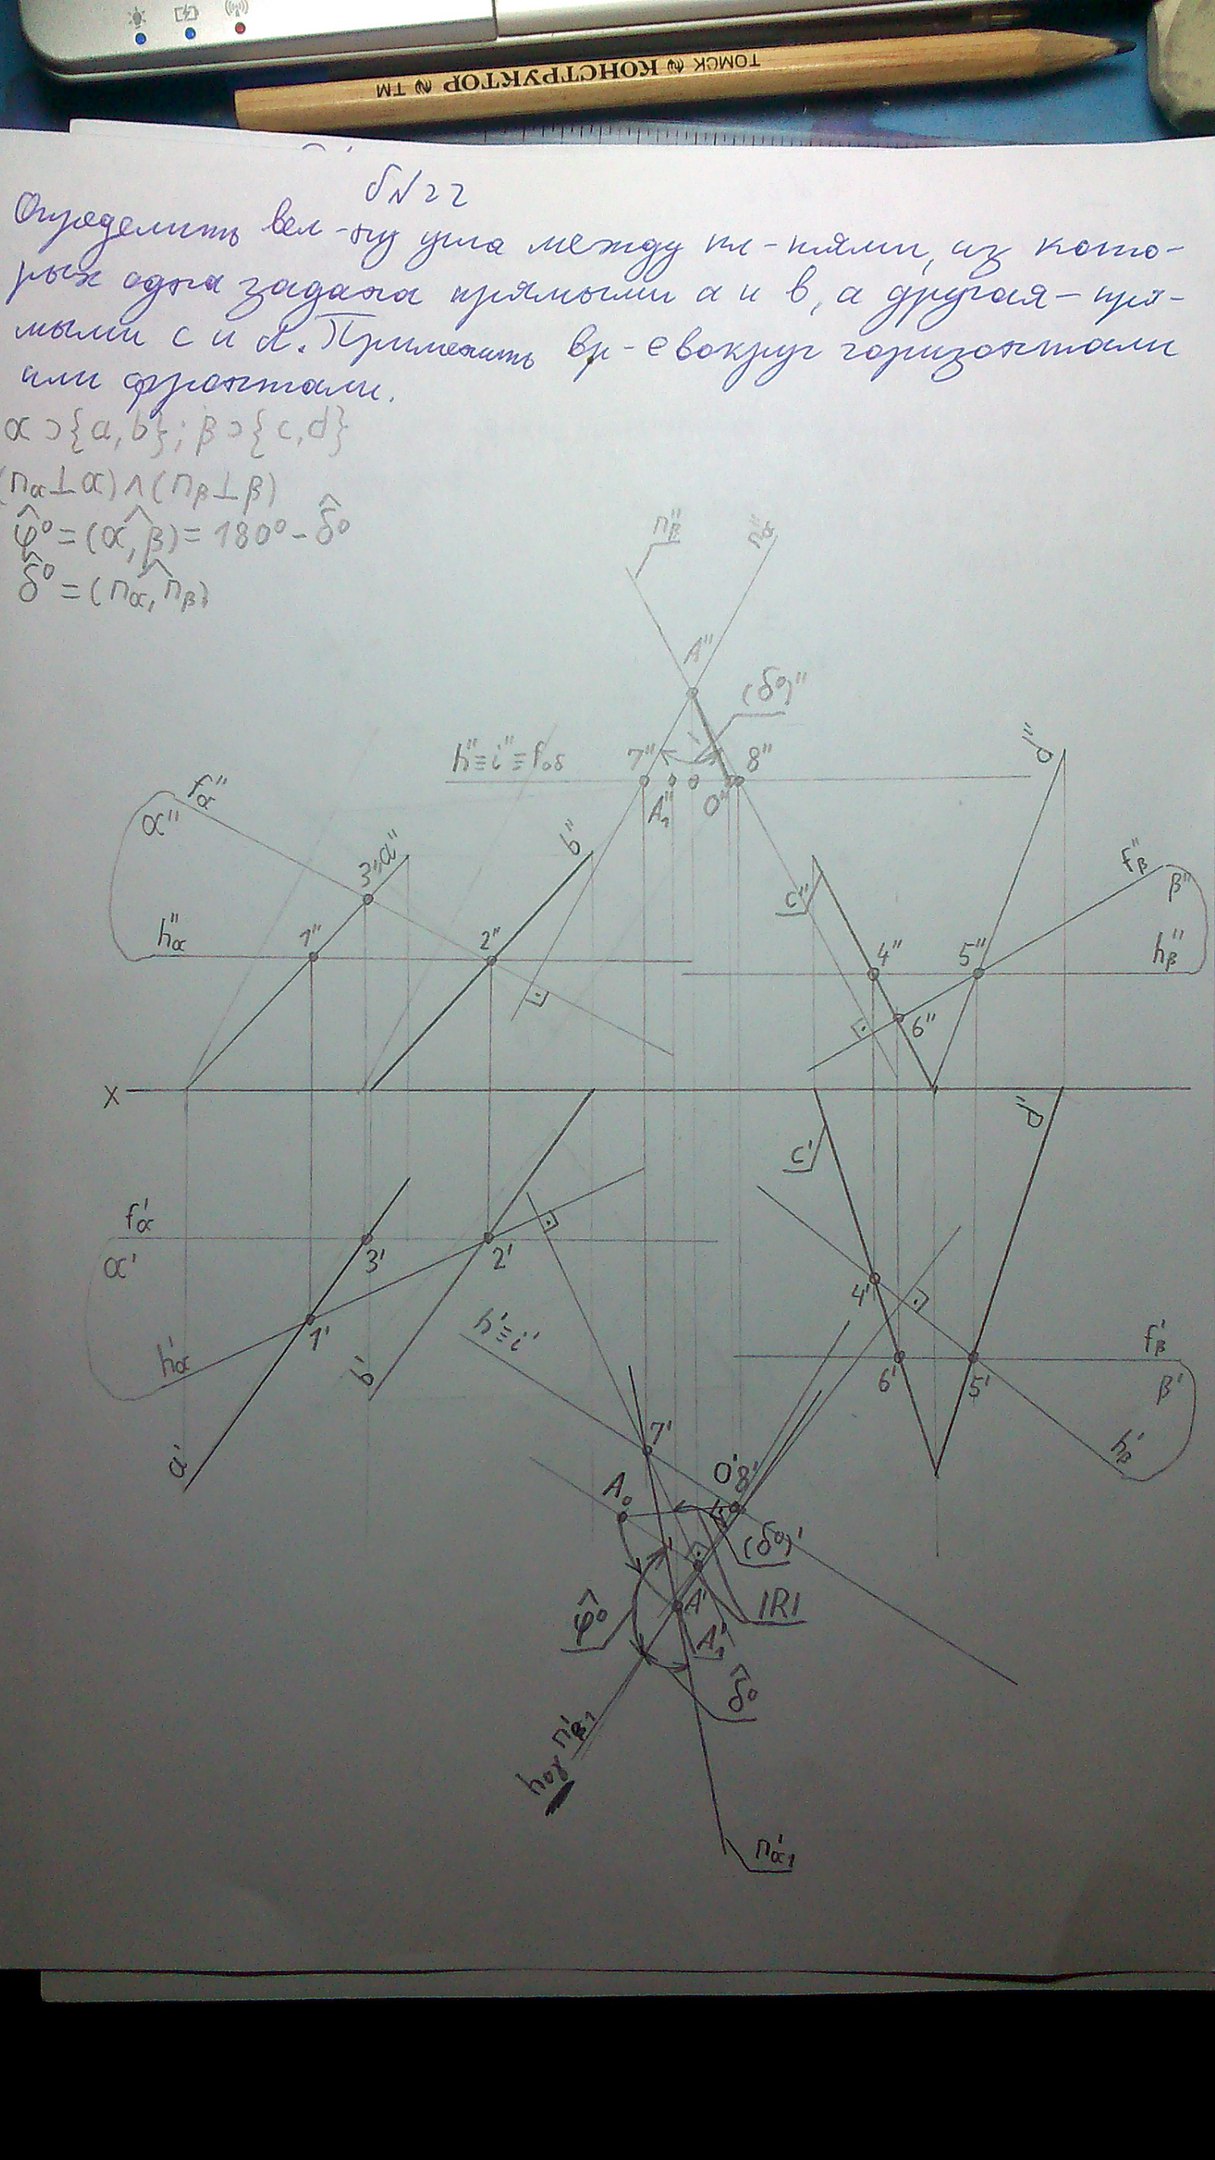 ТОМСК КОНСТРУКТОР ТМ
б№22
Определить вел-ну угла между пл-нями, из кото-
рых одна задана прямыми а и в, а другая - пря-
мыми с и d. Применить вр-е вокруг горизонтали
или фронтали.
α⊃{a,b}; β⊃{c,d}
(nα⊥α)∧(nβ⊥β)
φ̂° = (α^β) = 180° - δ̂°
δ̂° = (nα^, nβ)
nβ" nα"
A"
(δ°)"
h"≡i"≡f₀δ 7" 8"
A₁" O"
d"
fα"
α"
3" a" b"
fβ"
β"
c"
hα" 1" 2" 4" 5" hβ"
6"
x
d'
c'
fα'
α' 3' 2'
4'
1' h'≡i'
hα' b'
fβ'
6' 5' β'
a' 7' hβ'
A₀ O' 8'
(δ°)'
φ̂° A' |R|
A₁'
δ̂°
nβ₁'
h₀γ
nα₁'